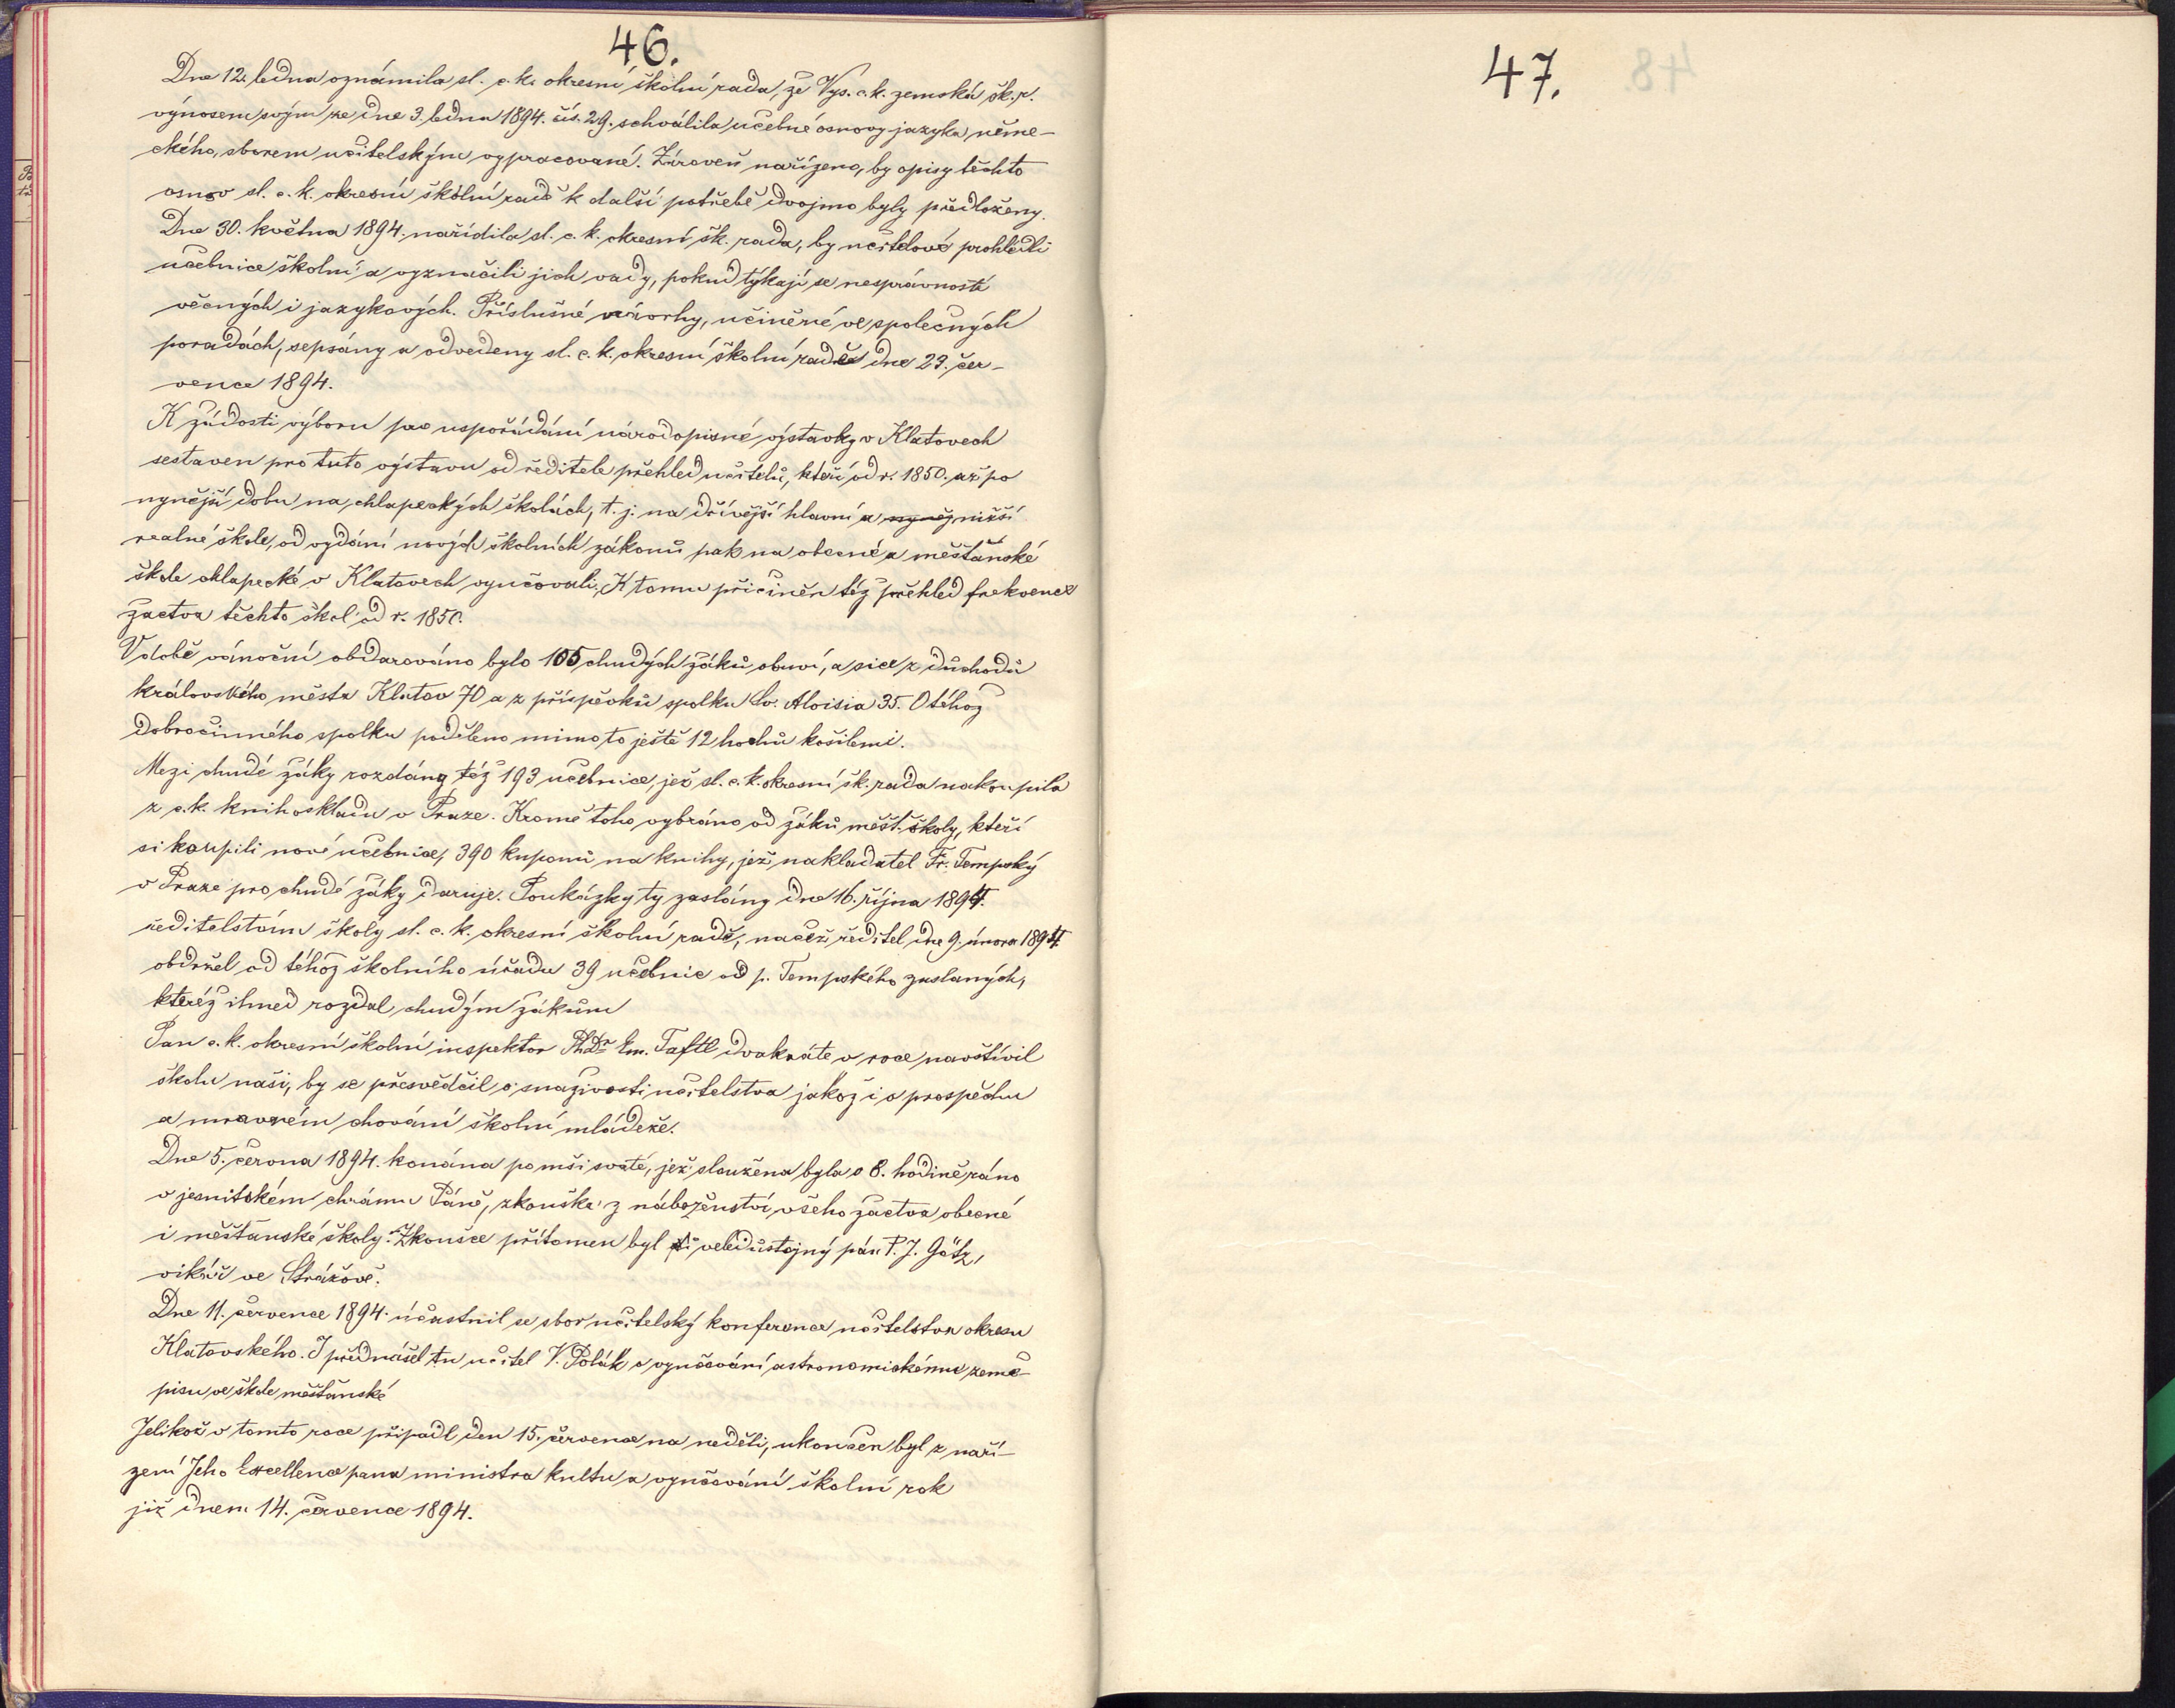 46.
Dne 12. ledna oznámila sl. c. k. okresní školní rada, že Vys. c. k. zemská šk. r.
výnosem svým ze dne 3. ledna 1894. čís. 29. schválila učebné osnovy jazyka něme-
ckého, sborem učitelským vypracované. Zároveň nařízeno, by opisy těchto
osnov sl. c. k. okresní školní radě k další potřebě dvojmo byly předloženy.
Dne 30. května 1894. nařídila sl. c. k. okresní šk. rada, by učitelové prohlédli
učebnice školní a vyznačili jich vady, pokud týkají se nesprávností
věcných i jazykových. Příslušné návrhy, učiněné ve společných
poradách, sepsány a odvedeny sl. c. k. okresní školní radě dne 29. čer-
vence 1894.
K žádosti výboru pro uspořádání národopisné výstavky v Klatovech
sestaven pro tuto výstavu od ředitele přehled učitelů, kteří od r. 1850. až po
nynější dobu na chlapeckých školách, t. j. na dřívější hlavní a nižší
realné škole, od vydání nových školních zákonů pak na obecné a měšťanské
škole chlapecké v Klatovech vyučovali. K tomu přičiněn též přehled frekvence
žactva těchto škol od r. 1850.
V době vánoční obdarováno bylo 105 chudých žáků obuví, a sice z důchodů
královského města Klatov 70 a z příspěvků spolku Sv. Aloisia 35. Od téhož
dobročinného spolku poděleno mimo to ještě 12 hochů košilemi.
Mezi chudé žáky rozdány též 193 učebnice, jež sl. c. k. okresní šk. rada nakoupila
z c. k. knihoskladu v Praze. Kromě toho vybráno od žáků měšť. školy, kteří
si koupili nové učebnice, 390 kuponů na knihy, jež nakladatel Fr. Tempský
v Praze pro chudé žáky daruje. Poukázky ty zaslány dne 16. října 1894.
ředitelstvím školy sl. c. k. okresní školní radě, načež ředitel dne 9. února 1894
obdržel od téhož školního úřadu 39 učebnic od p. Tempského zaslaných,
kteréž ihned rozdal chudým žákům
Pan c. k. okresní školní inspektor PhDr. Em. Taftl dvakráte v roce navštívil
školu naši, by se přesvědčil o snaživosti učitelstva jakož i o prospěchu
a mravném chování školní mládeže.
Dne 5. června 1894. konána po mši svaté, jež sloužena byla o 8. hodině ráno
v jesuitském chrámu Páně, zkouška z náboženství všeho žactva obecné
i měšťanské školy. Zkoušce přítomen byl veledůstojný pán P. J. Götz,
vikář ve Strážově.
Dne 11. července 1894. účastnil se sbor učitelský konference učitelstva okresu
Klatovského. I přednášel tu učitel V. Polák o vyučování astronomickému země-
pisu ve škole měšťanské
Jelikož v tomto roce připadl den 15. července na neděli, ukončen byl z naří-
zení Jeho Excellence pana ministra kultu a vyučování školní rok
již dnem 14. července 1894.
47.